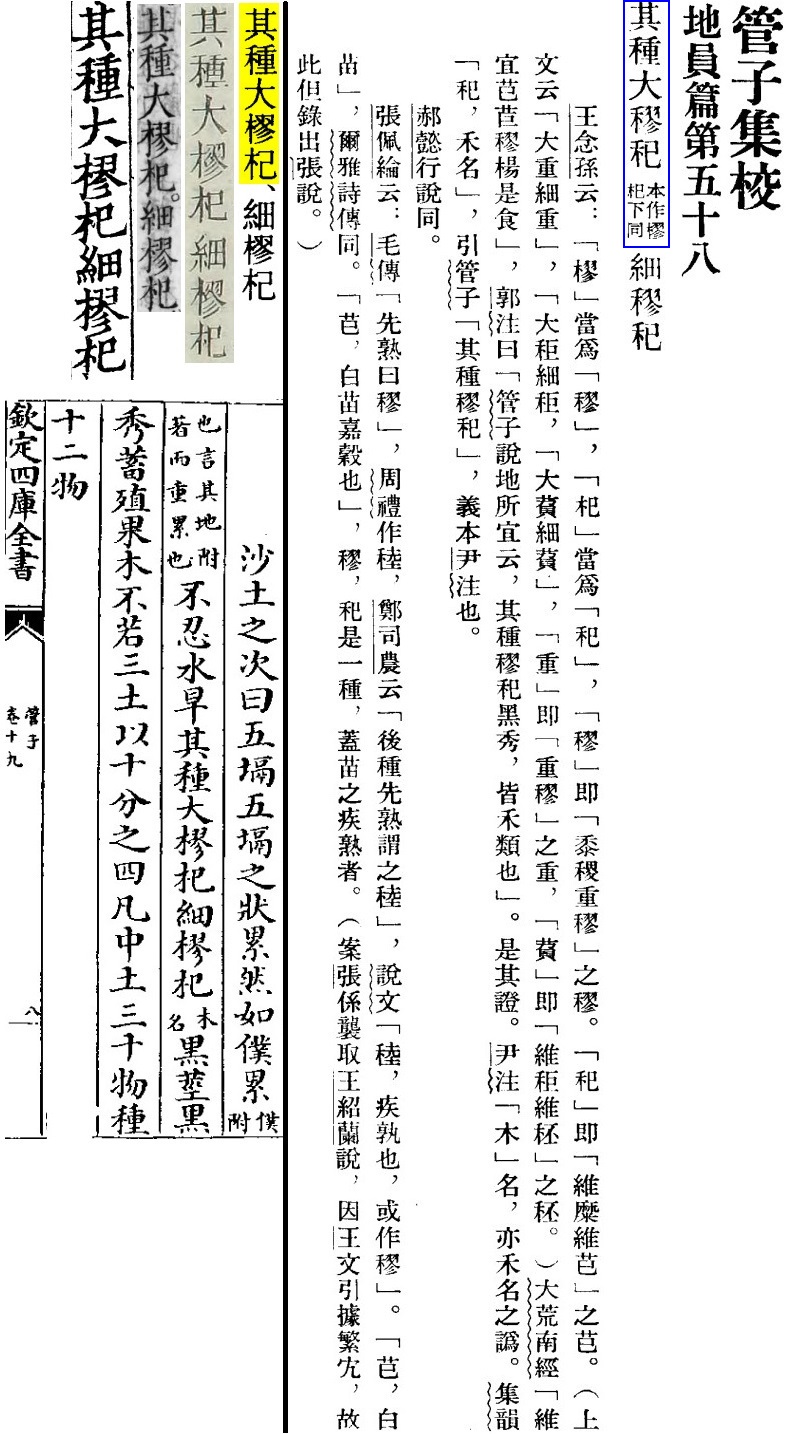 管子集校
地員篇第五十八
其種大穋秜本作樛杞下同細穋秜
王念孫云：「樛」當爲「穋」，「杞」當爲「秜」，「穋」即「黍稷重穋」之穋。「秜」即「維穈維芑」之芑。（上
文云「大重細重」，「大秬細秬」，「大蕡細蕡」，「重」即「重穋」之重，「蕡」即「維秬維秠」之秠。）大荒南經「維
宜芑苣穋楊是食」，郭注曰「管子說地所宜云，其種穋秜黑秀，皆禾類也」。是其證。尹注「木」名，亦禾名之譌。集韻
「秜，禾名」，引管子「其種穋秜」，義本尹注也。
郝懿行說同。
張佩綸云：毛傳「先熟曰穋」，周禮作稑，鄭司農云「後種先熟謂之稑」，說文「稑，疾孰也，或作穋」。「芑，白
苗」，爾雅詩傳同。「芑，白苗嘉穀也」，穋，秜是一種，蓋苗之疾熟者。（案張係襲取王紹蘭說，因王文引據繁宂，故
此但錄出張說。）
其種大樛杞、細樛杞
其種大樛杞細樛杞
其種大樛杞。細樛杞
其種大樛杞細樛杞
沙土之次曰五塥五塥之狀累然如僕累僕附
也言其地附著而重累也不忍水旱其種大樛杞細樛杞木名黑莖黑
秀蓄殖果木不若三土以十分之四凡中土三十物種
十二物
欽定四庫全書
管子
卷十九
八